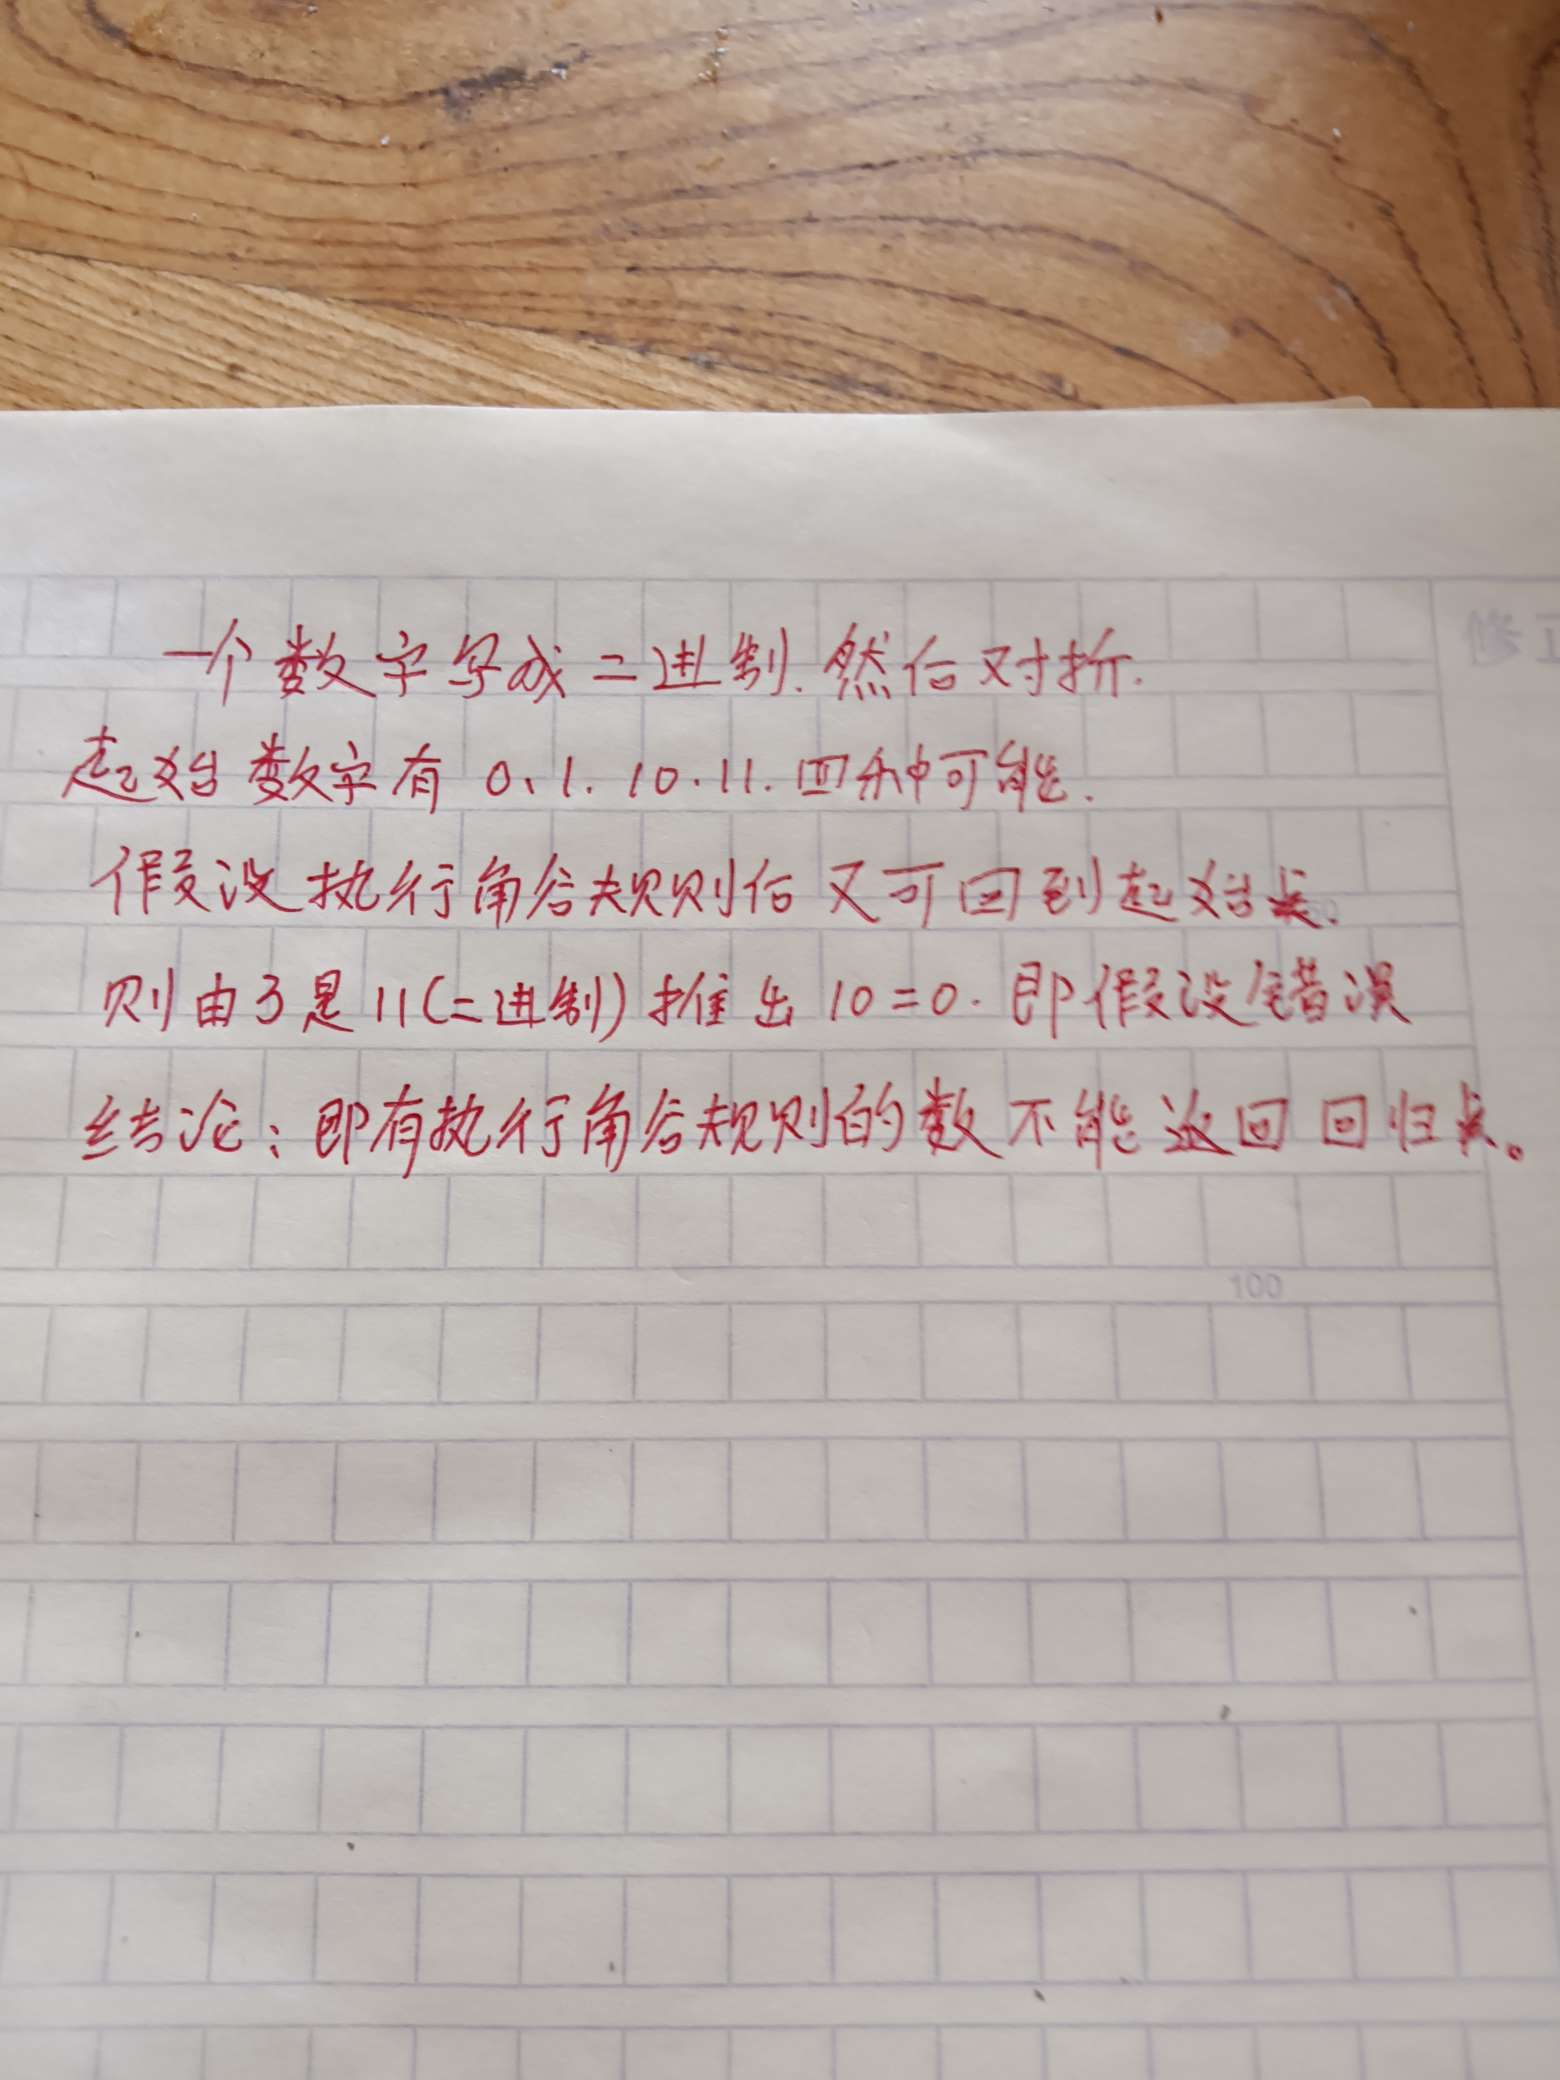 一个数字写成二进制.然后对折.
起始数字有 0、1. 10. 11. 四种可能.
假设执行角谷规则后又可回到起始点.
则由3是11(二进制)推出 10=0. 即假设错误
结论：即有执行角谷规则的数不能返回回归点。
100
修正